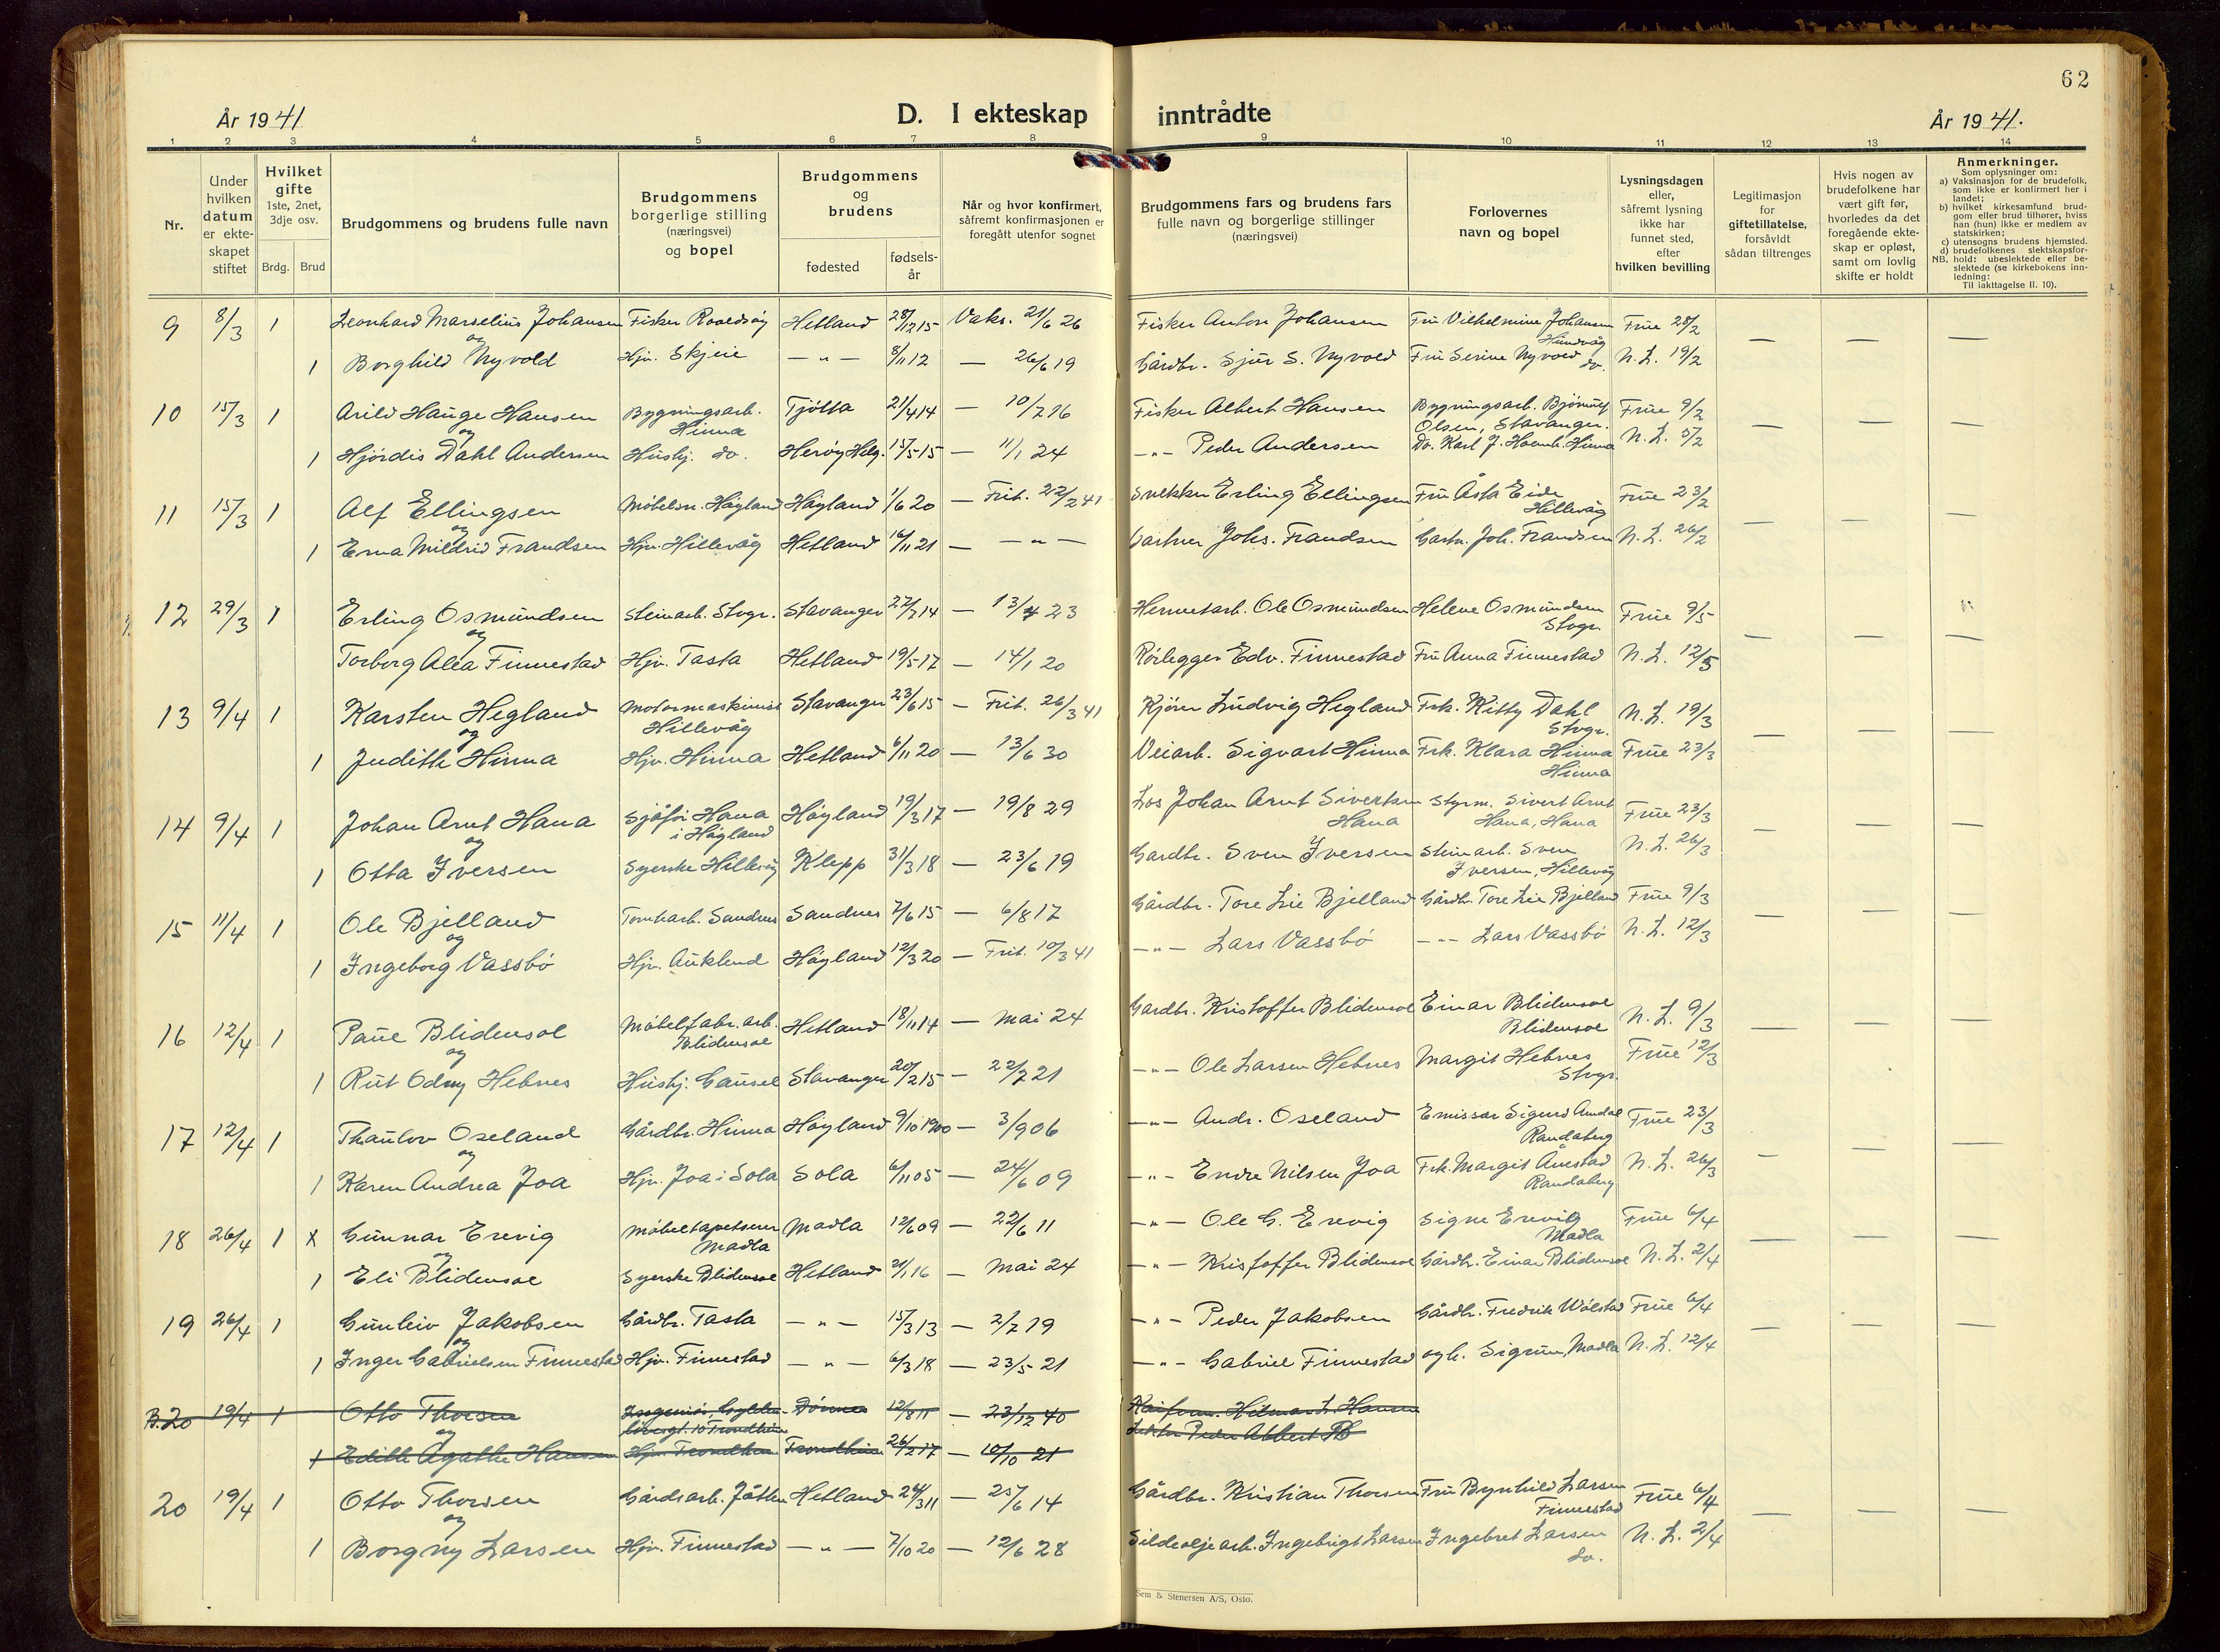 62
År 1941
D. I ekteskap inntrådte
År 1941.
1 2 3 4 5 6 7 8 9 10 11 12 13 14
Nr.
Under hvilken datum er ekte-skapet stiftet
Hvilket gifte 1ste, 2net, 3dje osv.
Brdg. Brud
Brudgommens og brudens fulle navn
Brudgommens borgerlige stilling (næringsvei) og bopel
Brudgommens og brudens
fødested
fødsels-år
Når og hvor konfirmert, såfremt konfirmasjonen er foregått utenfor sognet
Brudgommens fars og brudens fars fulle navn og borgerlige stillinger (næringsvei)
Forlovernes navn og bopel
Lysningsdagen eller, såfremt lysning ikke har funnet sted, efter hvilken bevilling
Legitimasjon for giftetillatelse, forsåvidt sådan tiltrenges
Hvis nogen av brudefolkene har vært gift før, hvorledes da det foregående ekte-skap er opløst, samt om lovlig skifte er holdt
Anmerkninger.
Som oplysninger om:
a) Vaksinasjon for de brudefolk, som ikke er konfirmert her i landet;
b) hvilket kirkesamfund brud-gom eller brud tilhører, hviss han (hun) ikke er medlem av statskirken;
c) utensogns brudens hjemsted.
d) brudefolkenes slektskapsfor-
NB. hold: ubeslektede eller be-slektede (se kirkebokens inn-ledning:
Til iakttagelse II. 10).
9 8/3 1 Leonhard Marselius Johansen Fisker Hetland 28/12 15 Vaks. 21/6 26 Fisker Anton Johansen Fru Vilhelmine Johansen Hundvåg Frue 28/2
og
1 Borghild Nyvold Hjv. Skjeie —"— 8/11 12 — 26/6 19 Gårdbr. Sjur S. Nyvold Fru Serine Nyvold do. N. L. 19/2
10 15/3 1 Arild Hauge Hansen Bygningsarb. Hinna Tjøtta 21/4 14 — 10/7 16 Fisker Albert Hansen Bygningsarb. Olsen, Stavanger. Frue 9/2
og
1 Hjørdis Dahl Andersen Husbj. do. Herøy Helg. 15/5 15 — 11/1 24 —"— Peder Andersen Do. Karl J. Hinna N. L. 5/2
11 15/3 1 Alf Ellingsen Møbelsn. Høyland Høyland 1/6 20 — Frit. 22/2 41 Snekker Erling Ellingsen Fru Åsta Eide Hillevåg Frue 23/2
og
1 Erna Mildrid Frandsen Hjv. Hillevåg Hetland 16/11 21 — —"— Gartner Johs. Frandsen Gartn. Joh. Frandsen N. L. 26/2
12 29/3 1 Erling Osmundsen Steinarb. Stvgr. Stavanger 22/7 14 — 13/4 23 Hermetarb. Ole Osmundsen Helene Osmundsen Stvgr. Frue 9/5
og
Torborg Alea Finnestad Hjv. Tasta Hetland 19/5 17 — 14/1 20 Rørlegger Edv. Finnestad Fru Anna Finnestad N. L. 12/5
13 9/4 1 Karsten Hegland Motormaskinist Hillevåg Stavanger 23/6 15 — Frit. 26/3 41 Kjører Ludvig Hegland Frk. Kitty Dahl Stvgr. N. L. 19/3
og
1 Judith Hinna Hjv. Hinna Hetland 6/11 20 — 13/6 30 Veiarb. Sigvart Hinna Frk. Klara Hinna Hinna Frue 23/3
14 9/4 1 Johan Arnt Hana Sjåfør Hana i Høyland Høyland 19/3 17 — 19/8 29 Los Johan Arnt Sivertsen Hana Styrm. Sivert Arnt Hana, Hana Frue 23/3
og
1 Otta Iversen Syerske Hillevåg Klepp 31/3 18 — 23/6 19 Gardbr. Sven Iversen Steinarb. Sven Iversen, Hillevåg N. L. 26/3
15 11/4 1 Ole Bjelland Sandnes Sandnes 7/6 15 — 6/8 17 Gårdbr. Tore Lie Bjelland Gårdbr. Tore Lie Bjelland Frue 9/3
og
1 Ingeborg Vassbø Hjv. Auklend Høyland 12/3 20 — Frit. 10/3 41 —"— Lars Vassbø —"— Lars Vassbø N. L. 12/3
16 12/4 1 Paul Blidensol Møbelfabr. arb. Blidensol Hetland 18/11 14 — Mai 24 Gardbr. Kristoffer Blidensol Einar Blidensol Blidensol N. L. 9/3
og
1 Rut Odny Hebnes Husbj. Gausel Stavanger 20/2 15 — 22/7 21 —"— Ole Larsen Hebnes Margit Hebnes Stvgr. Frue 12/3
17 12/4 1 Thaulov Oseland Gårdbr. Hinna Høyland 9/10 1900 — 3/9 06 —"— Andr. Oseland Emissær Sigurd Randaberg Frue 23/3
og
1 Karen Andrea Joa Hjv. Joa i Sola Sola 6/11 05 — 24/6 09 —"— Endre Nilsen Joa Frk. Margit Randaberg N. L. 26/3
18 26/4 1 x Gunnar Erevig Møbeltapetserer Madla Madla 12/6 09 — 22/6 11 —"— Ole G. Erevig Signe Erevig Madla Frue 6/4
og
1 Eli Blidensol Syerske Blidensol Hetland 21/1 16 — Mai 24 —"— Kristoffer Blidensol Gårdbr. Einar Blidensol N. L. 2/4
19 26/4 1 Gunleiv Jakobsen Gårdbr. Tasta —"— 15/3 13 — 2/7 19 —"— Peder Jakobsen Gårdbr. Fredrik Wølstad Frue 6/4
og
1 Inger Gabrielsen Finnestad Hjv. Finnestad —"— 6/3 18 — 23/5 21 —"— Gabriel Finnestad og h. Sigrun, Madla N. L. 12/4
B.20 19/4 1 Otto Thorsen Ingeniør, 10 Trondheim Dønnes 12/8 11 — 23/12 40 Hilmar L. Hansen
og
1 Edith Agathe Hansen Hjv. Trondheim Trondheim 26/2 17 — 10/10 21 Lektor Peder Albert
20 19/4 1 Otto Thorsen Gårdsarb. Jåtten Hetland 24/3 11 — 25/6 14 Gårdbr. Kristian Thorsen Fru Bynhild Larsen Finnestad Frue 6/4
og
1 Borgny Larsen Hjv. Finnestad —"— 7/10 20 — 12/6 28 Sildoljearb. Ingebrigt Larsen Ingebret Larsen do. N. L. 2/4
Sem & Stenersen A/S, Oslo.